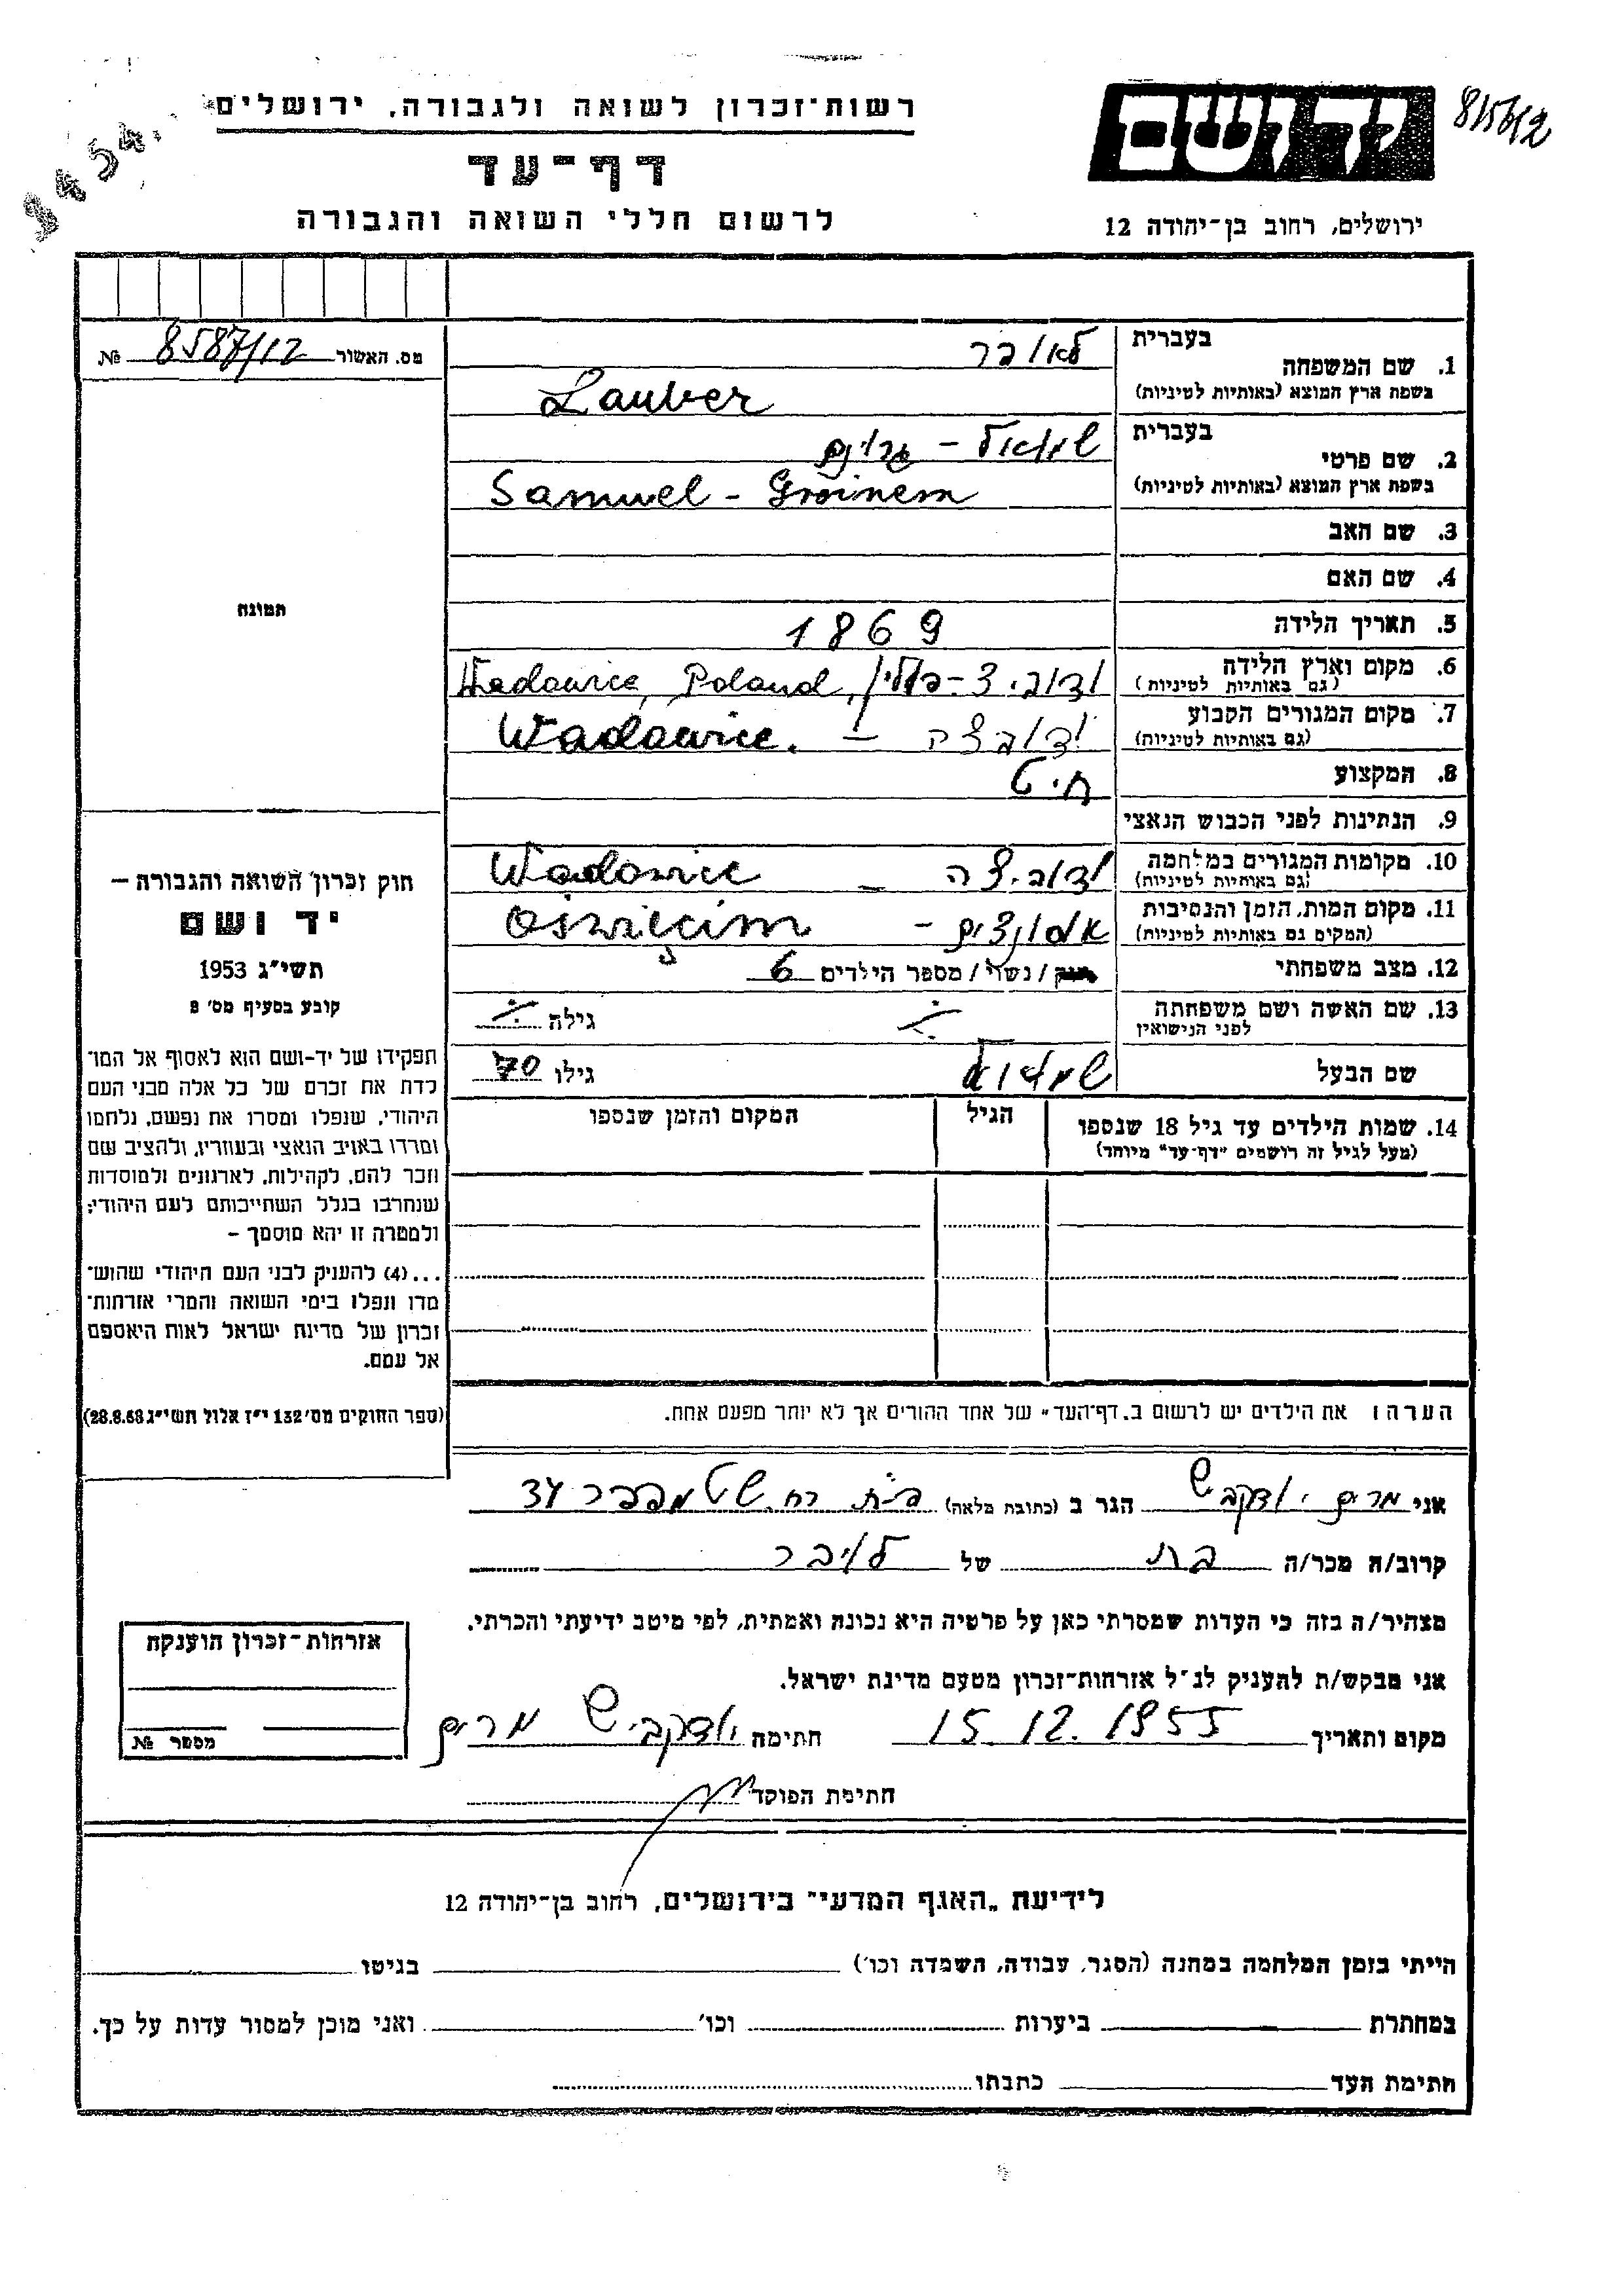 רשות־זכרון לשואה ולגבורה, ירושלים
דף־עד
לרשום חללי השואה והגבורה
יד ושם
ירושלים, רחוב בן־יהודה 12
מס. האשור 8587/12 №
תמונה
1. שם המשפחה
בעברית לאובר
בשפת ארץ המוצא (באותיות לטיניות) Lauber
2. שם פרטי
בעברית שמואל –
בשפת ארץ המוצא (באותיות לטיניות) Samuel - Groinem
3. שם האב
4. שם האם
5. תאריך הלידה 1869
6. מקום וארץ הלידה
(גם באותיות לטיניות) Wadowice, Poland,
7. מקום המגורים הקבוע ודוביצה –
(גם באותיות לטיניות) Wadowice.
8. המקצוע חיט
9. הנתינות לפני הכבוש הנאצי
10. מקומות המגורים במלחמה ודוביצה –
(גם באותיות לטיניות) Wadowice
11. מקום המות, הזמן והנסיבות –
(המקום גם באותיות לטיניות) Oświęcim
12. מצב משפחתי / נשוי / מספר הילדים 6
13. שם האשה ושם משפחתה גילה
לפני הנישואין
שם הבעל שמואל גילו 70
14. שמות הילדים עד גיל 18 שנספו הגיל המקום והזמן שנספו
(מעל לגיל זה רושמים "דף־עד" מיוחד)
הערה: את הילדים יש לרשום ב"דף־העד" של אחד ההורים אך לא יותר מפעם אחת.
חוק זכרון השואה והגבורה —
יד ושם
תשי"ג 1953
קובע בסעיף מס' 2
תפקידו של יד־ושם הוא לאסוף אל המו־
לדת את זכרם של כל אלה מבני העם
היהודי, שנפלו ומסרו את נפשם, נלחמו
ומרדו באויב הנאצי ובעוזריו, ולהציב שם
וזכר להם, לקהילות, לארגונים ולמוסדות
שנחרבו בגלל השתייכותם לעם היהודי;
ולמטרה זו יהא מוסמך —
...(4) להעניק לבני העם היהודי שהוש־
מדו ונפלו בימי השואה והמרי אזרחות־
זכרון של מדינת ישראל לאות היאספם
אל עמם.
(ספר החוקים מס' 132 י"ז אלול תשי"ג 28.8.53)
אני מרים הגר ב (כתובת מלאה) רח. 34
קרוב/ה מכר/ה בת של לויבר
מצהיר/ה בזה כי העדות שמסרתי כאן על פרטיה היא נכונה ואמתית, לפי מיטב ידיעתי והכרתי.
אני מבקש/ת להעניק לנ"ל אזרחות־זכרון מטעם מדינת ישראל.
מקום ותאריך 15.12.1955 חתימה מרים
חתימת הפוקד
אזרחות־זכרון הוענקה
מספר №
לידיעת "האגף המדעי" בירושלים, רחוב בן־יהודה 12
הייתי בזמן המלחמה במחנה (הסגר, עבודה, השמדה וכו') בגיטו
במחתרת ביערות וכו' ואני מוכן למסור עדות על כך.
חתימת העד כתבתו